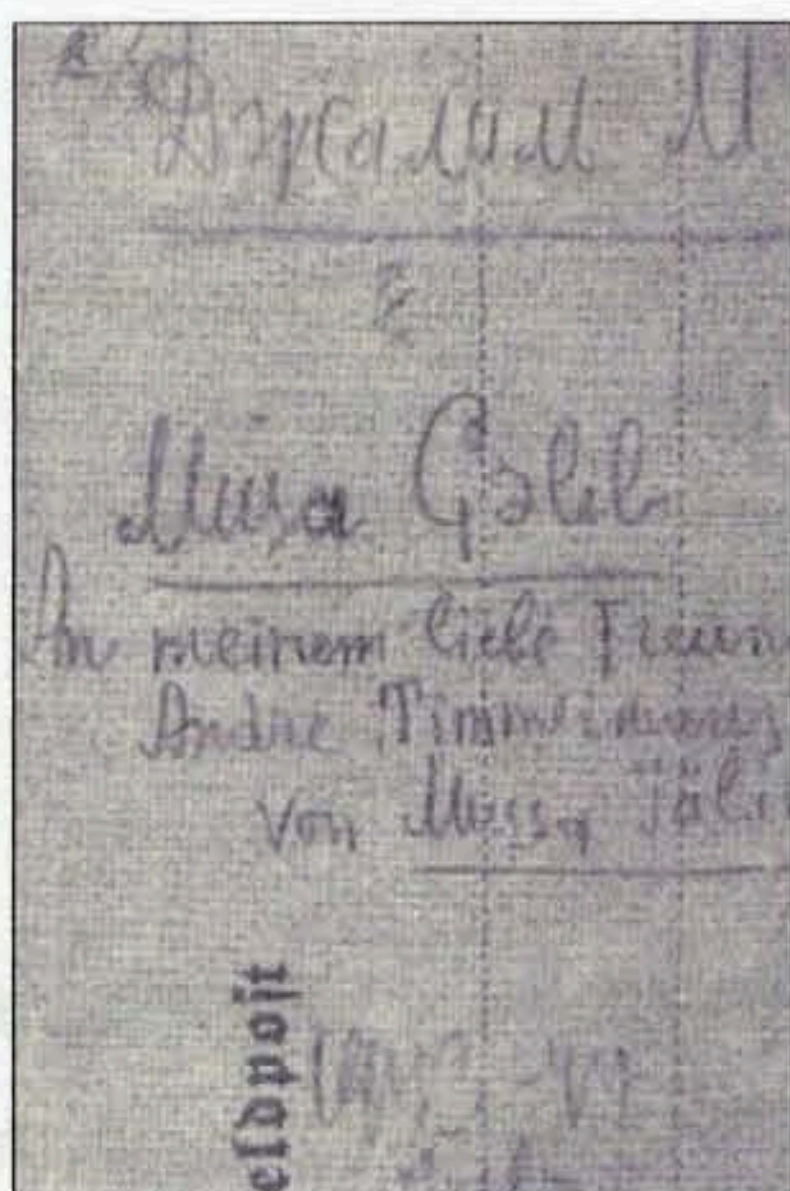 Джалил М
Musa Çəlil
An meinem liebe Freun
Andre Timmermans
von Mussa Jäli
eldpost